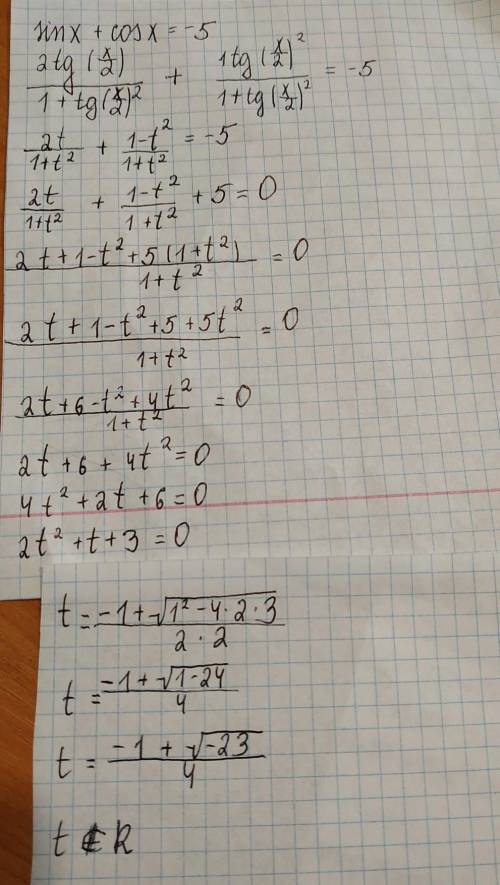 sinx + cosx = -5
2tg(x/2) / 1+tg(x/2)² + 1tg(x/2)² / 1+tg(x/2)² = -5
2t / 1+t² + 1-t² / 1+t² = -5
2t / 1+t² + 1-t² / 1+t² + 5 = 0
2t+1-t²+5(1+t²) / 1+t² = 0
2t+1-t²+5+5t² / 1+t² = 0
2t+6-t²+4t² / 1+t² = 0
2t+6+4t²=0
4t²+2t+6=0
2t²+t+3=0
t = -1+√1²-4·2·3 / 2·2
t = -1+√1-24 / 4
t = -1+√-23 / 4
t ∉ R